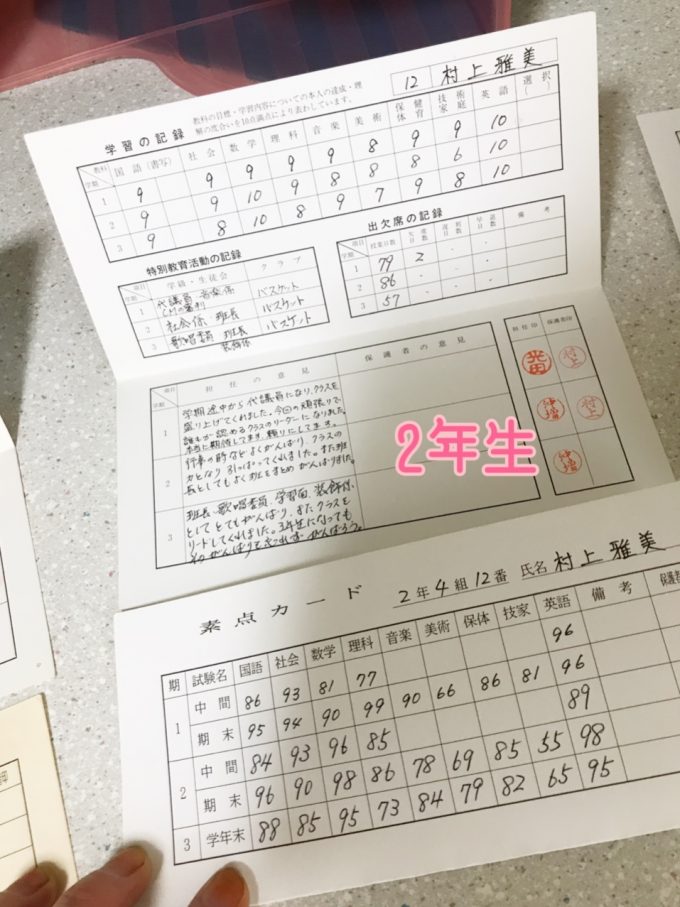 学習の記録
教科の目標・学習内容についての本人の達成・理
解の度合いを10点満点により表わしています。
12 村上雅美
教科 学期 国語(書写) 社会 数学 理科 音楽 美術 保健体育 技術家庭 英語 選択( )
1 9 9 9 9 9 8 9 9 10
2 9 9 10 9 8 8 8 6 10
3 9 8 10 8 9 7 9 8 10
特別教育活動の記録
項目 学期 学級・生徒会 クラブ
1 代議員 音楽係 バスケット
2 社会係 班長 バスケット
3 歌唱委員 班長 バスケット
装飾係
出欠席の記録
項目 学期 授業日数 欠席日数 遅刻日数 早退日数 備考
1 79 2 . .
2 86 . . .
3 57 . . .
項目 学期 担任の意見 保護者の意見 担任印 保護者印
1 学期途中から代議員になり、クラスを
盛り上げてくれました。今回の頑張りで
誰もが認めるクラスのリーダーになりました。
本当に期待してます。頼りにしてます。
2 行事の時などよくがんばり、クラスの
力となり引っぱってくれました。また班
長としてもよく班をまとめがんばりました。
3 班長、歌唱委員、学習面、装飾係、
としてとてもがんばり、またクラスを
リードしてくれました。3年生になっても
村上
村上
2年生
素点カード 2年4組12番 氏名 村上雅美
期 試験名 国語 社会 数学 理科 音楽 美術 保体 技家 英語 備考
1 中間 86 93 81 77 96
期末 95 94 90 99 90 66 86 81 96
2 中間 84 93 96 85 89
期末 96 90 98 86 78 69 85 55 98
3 学年末 88 85 95 73 84 79 82 65 95